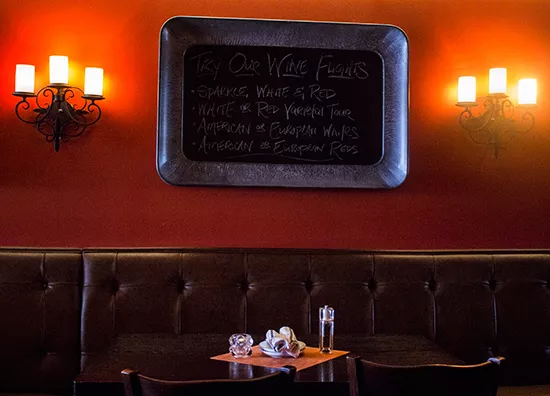 Try Our Wine Flights
• Sparkle, White & Red
• White or Red Varietal Tour
• American or European Whites
• American or European Reds